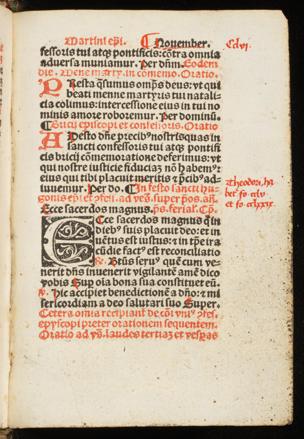 Martini ep̄i. ¶ Nouember. Cclvi.
fessoris tui atqȝ pontificis: cōtra omnia
aduersa muniamur. Per dn̄m. Eodem
die. Mene marty. in comemo. Oratio.
PResta q̄sumus om̄ps deus: vt qui
beati menne martyris tui natali-
cia colimus: intercessione eius in tui no-
minis amore roboremur. Per dominū.
Bricij episcopi et confessoris. Oratio
ADesto dn̄e precibꝰ nostris quas in
sancti confessoris tui atqȝ pontifi-
cis bricij cōmemoratione deferimus: vt
qui nostre iusticie fiduciaȝ nō habemꝰ:
eius qui tibi placuit meritis et p̄cibꝰ ad-
iuuemur. Per do. ¶ In festo sancti hu-
gonis ep̄i et ad vs̄. super pōs. an̄.
Ecce sacerdos magnus. ps. ferial. Cp̄.
ECce sacerdos magnus q̄ in
diebꝰ suis placuit deo: et in-
uētus est iustus: et in tp̄e ira
cūdie factꝰ est reconciliatio
Btūs seruꝰ quē cum ve-
nerit dn̄s inuenerit vigilantē amē dico
vobis Sup oīa bona sua constituet eū.
Hic accipiet benedictionē a dn̄o: et mi
sericordiam a deo salutari suo Super.
Cetera omnia recipiant̄ de cōi vniꝰ
epyscopi preter orationem sequentem.
Oratio ad vs̄. laudes tertiaȝ et vesp̄as
Theodori, ha-
betꝰ fo. clv
et fo. cclxxix.